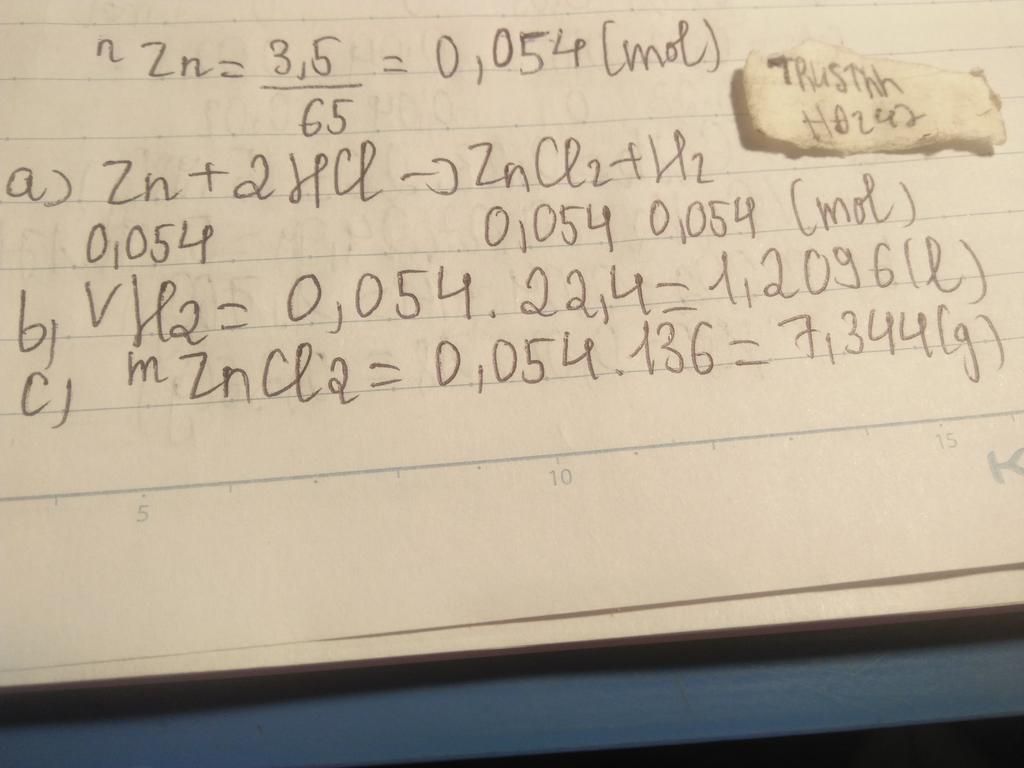 nZn = 3,5/65 = 0,054 (mol)
TRUSTNN
HOZ42
a) Zn + 2HCl → ZnCl2 + H2
0,054 0,054 0,054 (mol)
b, VH2 = 0,054 . 22,4 = 1,2096 (l)
c, mZnCl2 = 0,054 . 136 = 7,344 (g)
5 10 15
K